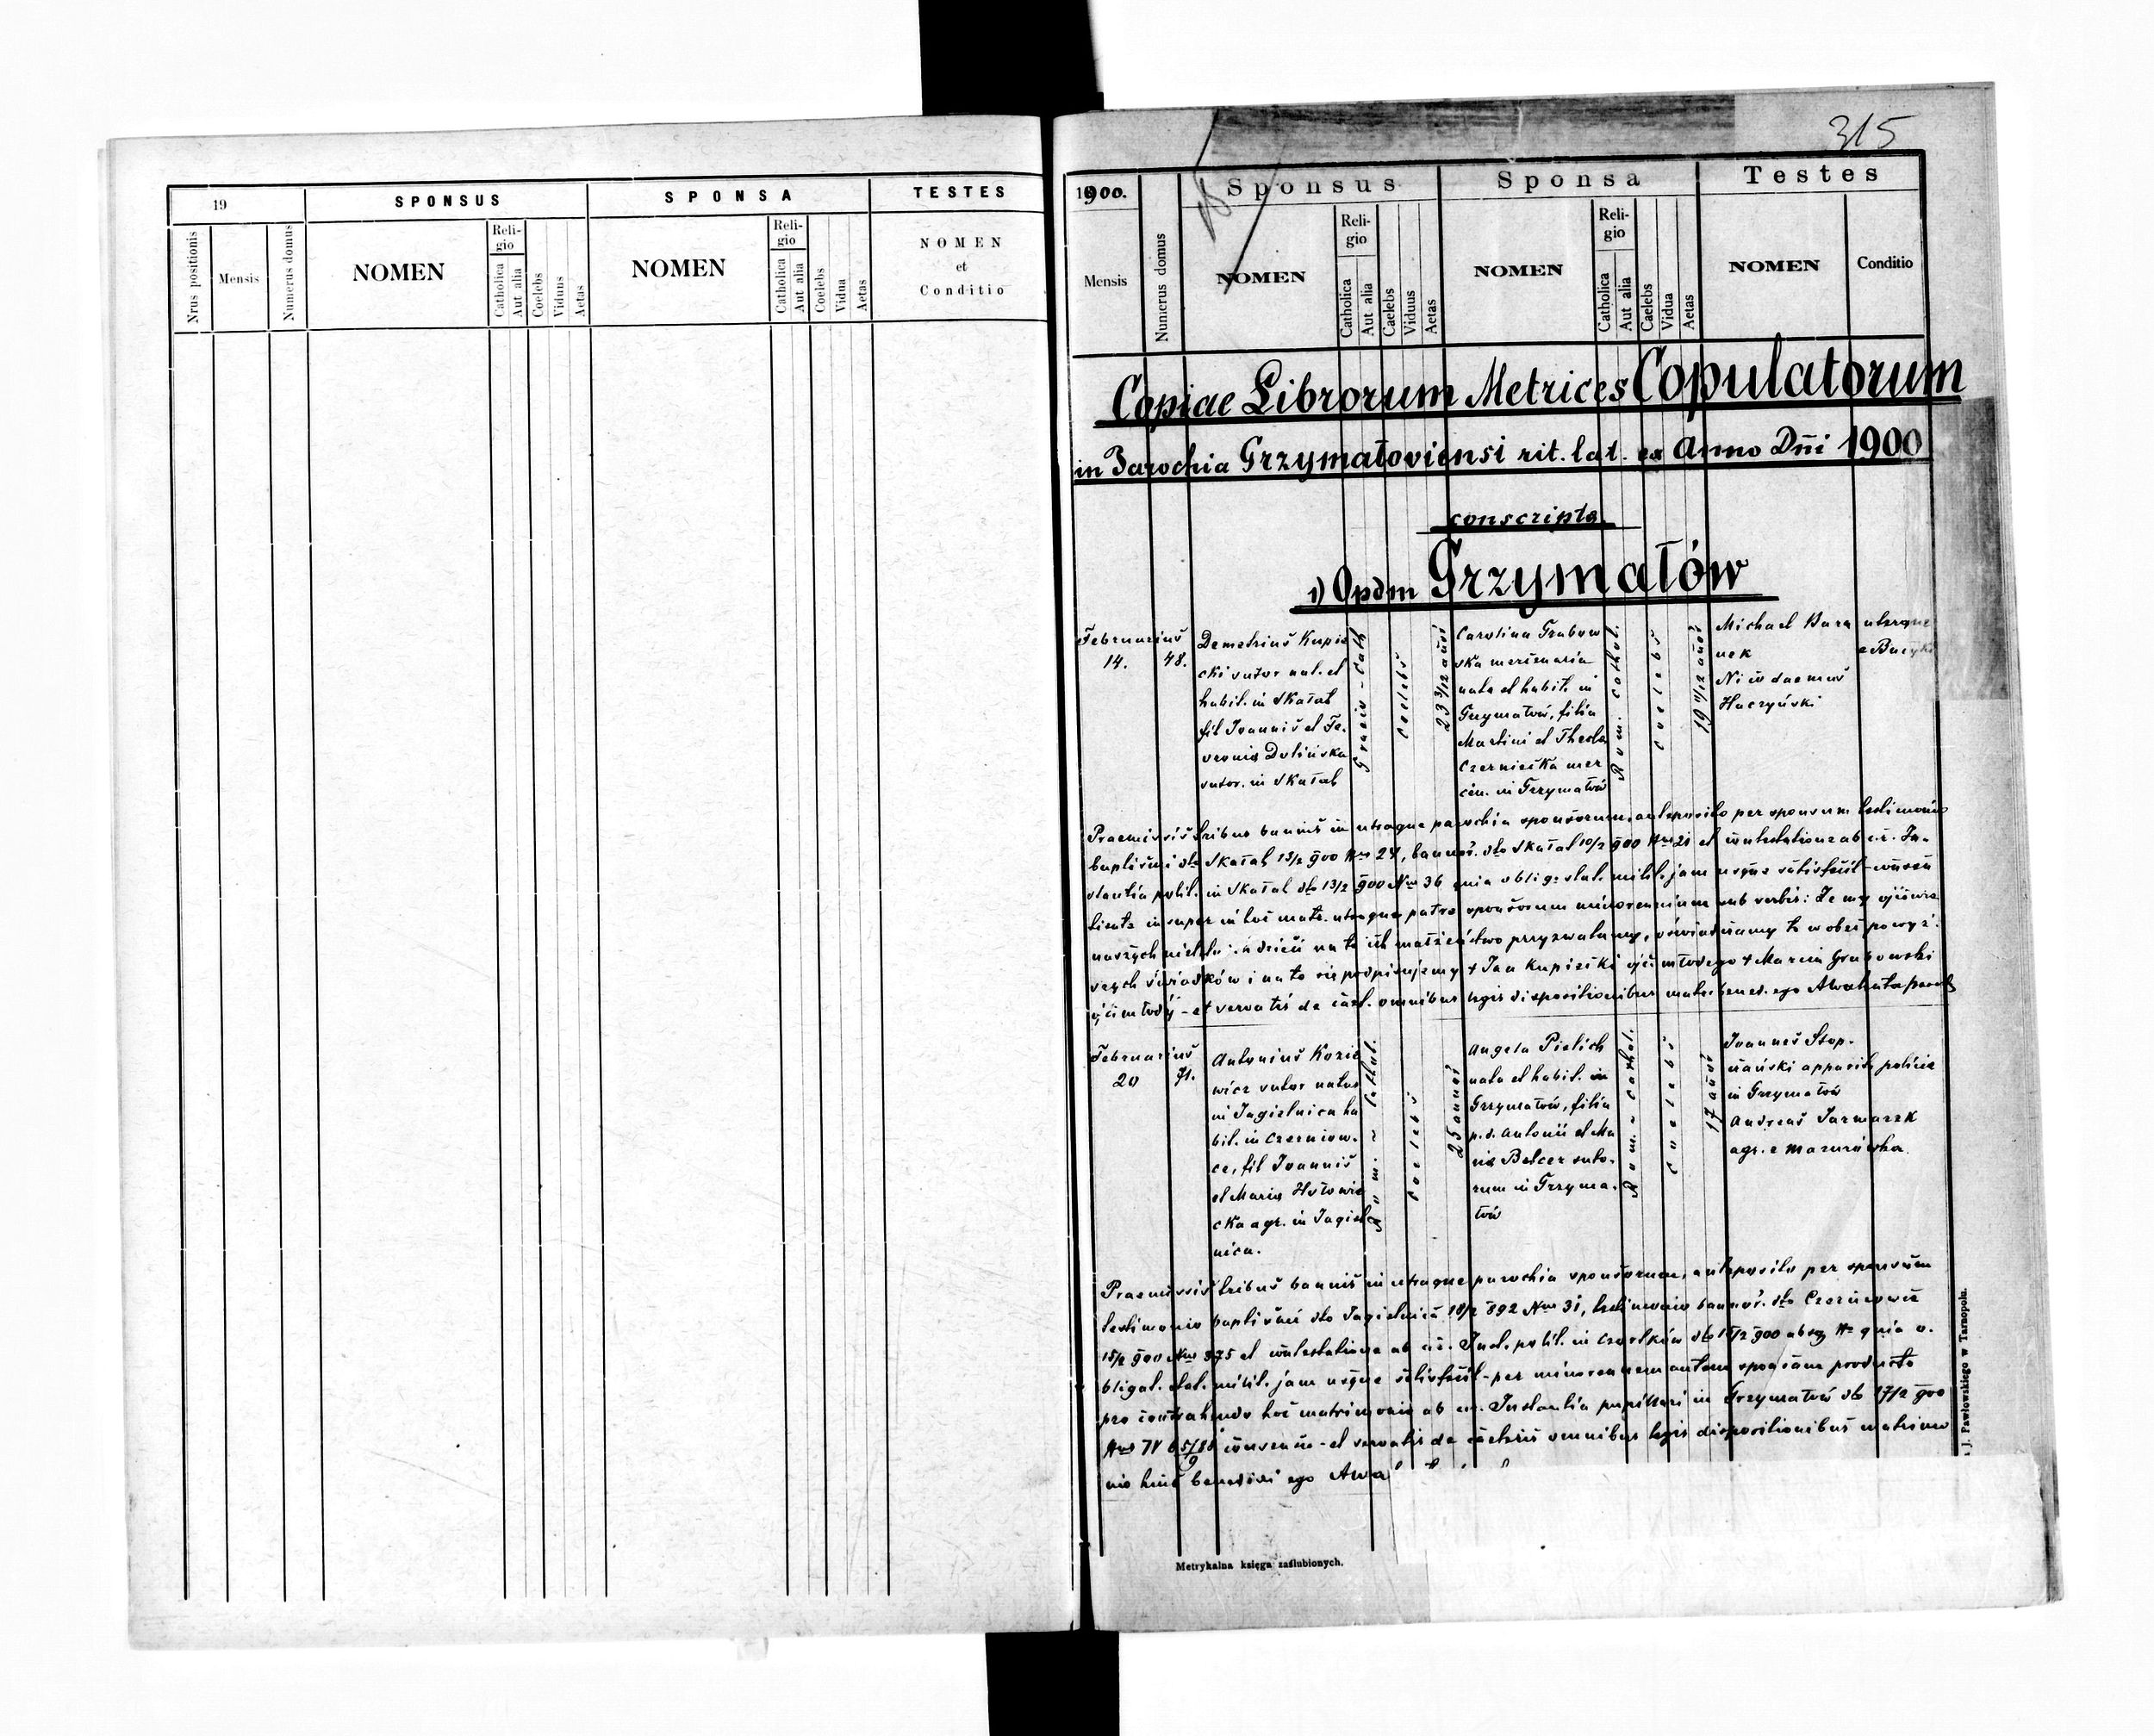 19
SPONSUS
SPONSA
TESTES
Nrus positionis
Mensis
Numerus domus
NOMEN
Reli-
gio
Catholica
Aut alia
Coelebs
Viduus
Aetas
NOMEN
Reli-
gio
Catholica
Aut alia
Coelebs
Vidua
Aetas
NOMEN
et
Conditio
315
1900.
Sponsus
Sponsa
Testes
Mensis
Numerus domus
NOMEN
Reli-
gio
Catholica
Aut alia
Caelebs
Viduus
Aetas
NOMEN
Reli-
gio
Catholica
Aut alia
Caelebs
Vidua
Aetas
NOMEN
Conditio
Copiae Librorum Metrices Copulatorum
in Parochia Grzymałoviensi rit. lat. ex Anno Dni 1900
conscripta
1) Opdm Grzymałów
Februarius
14.
48.
Demetrius Kupi
cki sutor nat. et
habit. in Skałat
fil Joannis et Fe-
vronia Dolińska
sutor. in Skałat
Graeco-Cath
Coelebs
23 3/12 annor
Carolina Grabow
ska mercenaria
nata et habit. in
Grzymałów, filia
Martini et Thecla
Czerniecka mer
cen. in Grzymałów
Rom. cathol.
Coelebs
19 11/12 annor
Michael Bara
nek
Nicodaemus
Huczyński
uterque
e Bucyki
Praemissis tribus bannis in utraque parochia sponsorum, anteposito per sponsum testimonio
baptismi dto Skałat 13/2 900 Nro 24, bannor. dto Skałat 10/2 900 Nro 21 et contestatione ab c.r. In-
stantia polit. in Skałat dto 13/2 900 Nro 36 quia oblig. stat. milit. jam usque satisfecit - consen
tiente insuper in hoc matr. utroque patre sponsorum minorennium sub verbis: Ze my ojcowie
naszych dzieci na to ich małżeństwo przyzwalamy, oświadczamy to w obec powyż
szych świadków i na to się podpisujemy + Jan Kupicki ojciec młodego + Marcin Grabowski
ojciec młodej - et servatis de caet. omnibus legis dispositionibus matr. bened. ego
Februarius
20
71.
Antonius Kozie
wicz sutor natus
in Jagielnica ha
bit. in Czerniow-
ce, fil Joannis
et Maria Hołowie
cka agr. in Jagiel
nica.
Rom. - Cathol.
Coelebs
25 annor
Angela Pielich
nata et habit. in
Grzymałów, filia
p.d. Antonii et Ma
ria Belcer suto-
rum in Grzyma-
łów
Rom. - cathol.
Coelebs
17 annor
Joannes Stop-
czański apparit. policie
in Grzymałów
Andreas Jarmaszk
agr. e Mazurówka
Praemissis tribus bannis in utraque parochia sponsorum, anteposito per sponsum
testimonio baptismi dto Jagielnica 18/2 892 Nro 31, testimonio bannor. dto Czerniowce
15/2 900 Nro 375 et contestatione ab c.r. Inst. polit. in Czortków dto 15/2 900 absq Nr quia o-
bligat. stat. milit. jam usque satisfecit - per minorennem autem sponsam producto
pro contrahendo hoc matrimonio ab c.r. Instantia pupillari in Grzymałów dto 17/2 900
Nro IV 65/88 consensu - et servatis de caeteris omnibus legis dispositionibus matrimo
9
nio huic benedixi ego
Metrykalna księga zaślubionych.
J. Pawłowskiego w Tarnopolu.